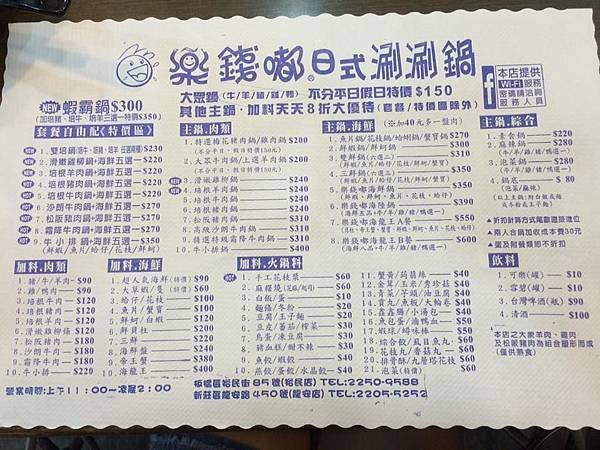 樂鍰嘟®日式涮涮鍋
大眾鍋(牛/羊/豬/雞/鴨) 不分平日假日特價$150
其他主鍋·加料天天8折大優待(套餐/特價區除外)
本店提供
Wi-Fi服務
密碼請洽詢
服務人員
NEW 蝦霸鍋$300
(加培豬、培牛、培羊三選一特價$350)
套餐自由配《特價區》
2.滑嫩雞柳鍋+海鮮五選一$220
3.培根羊肉鍋+海鮮五選一$220
4.培根豬肉鍋+海鮮五選一$220
5.培根牛肉鍋+海鮮五選一$220
6.沙朗牛肉鍋+海鮮五選一$270
7.松阪豬肉鍋+海鮮五選一$270
8.霜降牛肉鍋+海鮮五選一$270
9.牛小排鍋+海鮮五選一$350
(鮮蝦/魚片/蛤仔/花枝/鮮蚵)
主鍋.肉類
1.特選梅花豬肉鍋/雞肉鍋$200
2.大眾牛肉鍋/上選羊肉鍋$200
3.滑嫩雞柳鍋$240
4.培根羊肉鍋$240
5.培根牛肉鍋$240
6.培根豬肉鍋$240
7.松阪豬肉鍋$310
8.高級沙朗牛肉鍋$310
9.精選特級霜降牛肉鍋$310
10.牛小排鍋$400
主鍋.海鮮
(※加40元多一盤肉)
1.魚片鍋/花枝鍋/蛤蜊鍋/蟹寶鍋$270
2.鮮蝦鍋/鮮蚵鍋$300
3.雙鮮鍋(六選二)$310
4.三鮮鍋(六選三)$350
5.樂鍰嘟海鮮鍋$350
6.樂鍰嘟海陸鍋$390
7.樂鍰嘟海龍王A餐$550
8.樂鍰嘟海龍王B餐$600
主鍋.綜合
1.素食鍋$220
2.麻辣鍋$280
(牛/羊/雞/豬/鴨選一)
3.泡菜鍋$280
(牛/羊/雞/豬/鴨選一)
4.鍋底$80
(泡菜/麻辣)
折扣計算方式尾數進接進位
兩人合鍋加收成本費30元
蛋及附餐類恕不折扣
飲料
1.可樂(罐)$30
2.雪碧(罐)$30
3.台灣啤酒(瓶)$90
4.清酒(瓶)$100
本店之大眾羊肉、雞肉
及松阪豬肉為組合重組而成
(僅供熟食)
加料.肉類
1.豬/牛/羊肉$90
2.雞/鴨肉$90
3.培根豬肉$120
4.培根羊肉$120
5.培根牛肉$120
6.滑嫩雞柳條$120
7.松阪豬肉$180
8.沙朗牛肉$180
9.霜降牛肉$180
10.牛小排$220
加料.海鮮
1.超人氣海鮮(特價)$50
2.大草蝦/隻(特價)$60
3.蛤仔/花枝$100
4.魚片/蟹寶$100
5.鮮蝦/鮮蚵$120
6.鮮貝柱$120
7.三鮮$200
8.海鮮盤$240
9.帝王蟹$380
10.海龍王$400
加料.火鍋料
1.手工花枝漿$60
2.麻糬燒(芝麻/起司)$60
3.白飯/蛋$10
4.麵條/冬粉$20
5.豆腐/王子麵$20
6.豆皮/蕃茄/榨菜$30
7.鳥蛋/凍豆腐$30
8.豬血糕/甜不辣$30
9.魚餃/蝦餃$30
10.燕餃/蛋餃/水晶餃$40
11.蟹黃/蒟蒻絲$40
12.金茸/玉米/秀珍菇$40
13.青菜/芋頭/油豆腐$40
14.貢丸/魚板/大輪卷$40
15.鑫鑫腸/小湯包$40
16.魚包蛋/滷鴨血$50
17.蝦球/鱘味棒$50
18.綜合餃/虱目魚丸$60
19.花枝丸/香菇丸$60
20.排骨酥/九層塔花枝$60
21.泡菜(特價)$60
營業時間:上午11:00~凌晨2:00
板橋區裕民街85號(裕民店) TEL:2250-9588
新莊區龍安路450號(龍安店) TEL:2205-5252